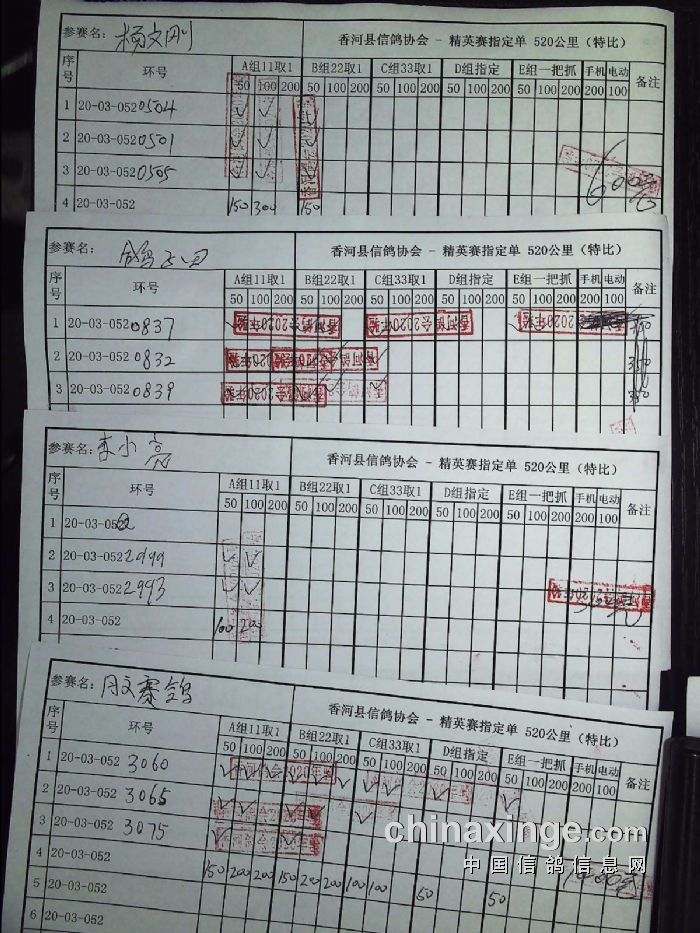 参赛名: 杨文刚 香河县信鸽协会 - 精英赛指定单 520公里(特比)
序号 环号 A组11取1 B组22取1 C组33取1 D组指定 E组一把抓 手机 电动 备注
50 100 200 50 100 200 50 100 200 50 100 200 50 100 200 200 100
1 20-03-052 0504 ✓ ✓ ✓
2 20-03-052 0501 ✓ ✓ ✓
3 20-03-052 0505 ✓ ✓ ✓
4 20-03-052 150 300 150
参赛名: 香河县信鸽协会 - 精英赛指定单 520公里(特比)
序号 环号 A组11取1 B组22取1 C组33取1 D组指定 E组一把抓 手机 电动 备注
50 100 200 50 100 200 50 100 200 50 100 200 50 100 200 200 100
1 20-03-052 0837
2 20-03-052 0832 350
3 20-03-052 0839
参赛名: 李小亮 香河县信鸽协会 - 精英赛指定单 520公里(特比)
序号 环号 A组11取1 B组22取1 C组33取1 D组指定 E组一把抓 手机 电动 备注
50 100 200 50 100 200 50 100 200 50 100 200 50 100 200 200 100
1 20-03-052
2 20-03-052 2999 ✓ ✓
3 20-03-052 2993 ✓ ✓
4 20-03-052 100 200
参赛名: 周文寨鸽 香河县信鸽协会 - 精英赛指定单 520公里(特比)
序号 环号 A组11取1 B组22取1 C组33取1 D组指定 E组一把抓 手机 电动 备注
50 100 200 50 100 200 50 100 200 50 100 200 50 100 200 200 100
1 20-03-052 3060
2 20-03-052 3065
3 20-03-052 3075
4 20-03-052
5 20-03-052 150 200 200 150 200 200 100 100 50 50
6 20-03-052
chinaxinge.com
中国信鸽信息网